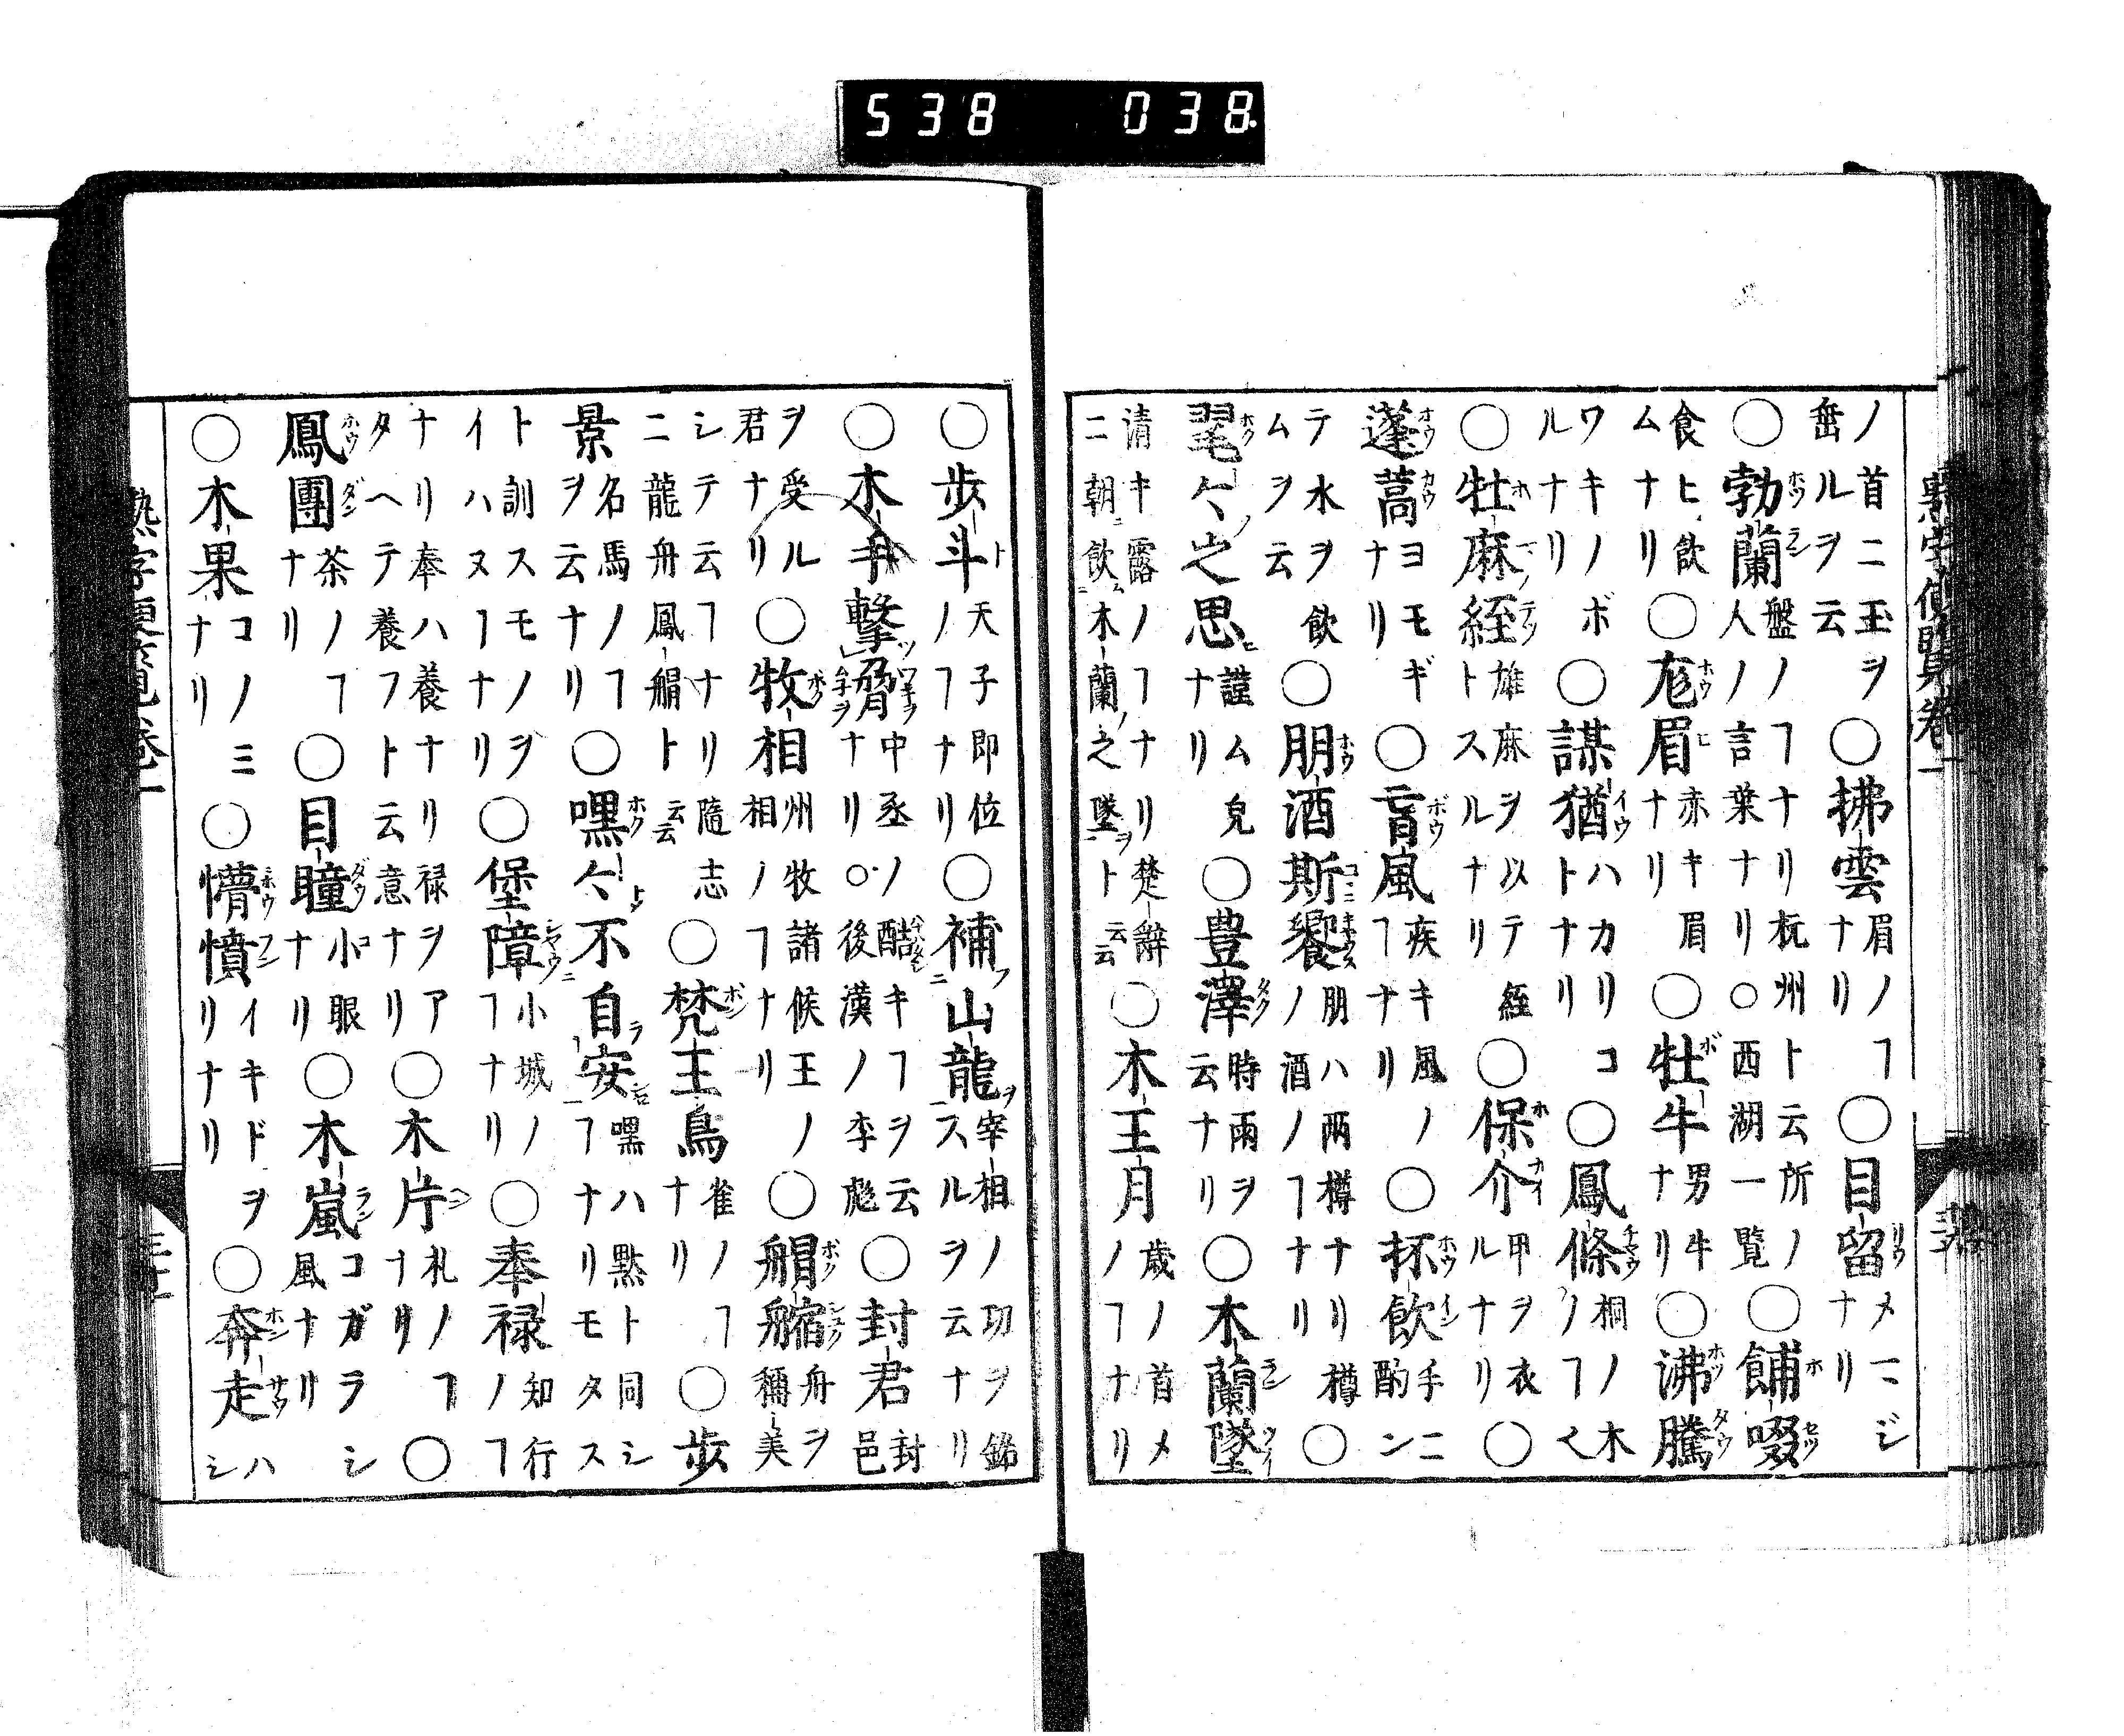 538 038
熟字便覧卷一
ノ首ニ玉ヲ垂ルヲ云○拂雲眉ノヿナリ○目留メーニジナリ
○勃蘭盤ノヿナリ杭州ト云所ノ人ノ言葉ナリ○西湖一覧○餔啜
食ヒ飲ムナリ○尨眉赤キ眉ナリ○牡牛男牛ナリ○沸騰
ワキノボルナリ○謀猶ハカリコトナリ○鳳條桐ノ木ノヿ也
○牡麻絰雄麻ヲ以テ絰トスルナリ○保介甲ヲ衣ルナリ○
蓬蒿ヨモギナリ○盲風疾キ風ノヿナリ○抔飲手ニ酌ン
テ水ヲ飲ムヲ云○朋酒斯饗朋ハ兩樽ナリ樽酒ノヿナリ○
毣々之思謹ム皃ナリ○豊澤時雨ヲ云ナリ○木蘭墜
清キ露ノヿナリ楚辭ニ朝飲木蘭之墜ト云云○木王月歳ノ首メノヿナリ
○歩斗天子即位ノヿナリ○補山龍宰相ノ功ヲ錦スルヲ云ナリ
○木手撃脅中丞ノ酷キヿヲ云ナリ○後漢ノ李彪○封君封邑
ヲ受ル君ナリ○牧相州牧諸候王ノ相ノヿナリ○艒䑿舟ヲ稱美
シテ云ヿナリ隨志ニ龍舟鳳艒ト云云○梵王鳥雀ノヿナリ○歩
景名馬ノヿヲ云ナリ○嘿々不自安嘿ハ黙ト同シヿナリモタス
ト訓スモノヲイハヌヿナリ○堡障小城ノヿナリ○奉禄知行ノヿ
ナリ奉ハ養ナリ禄ヲアタヘテ養フト云意ナリ○木片札ノヿナリ○
鳳團茶ノヿナリ○目瞳小眼ナリ○木嵐コガラシ風ナリ
○木果コノミナリ○懵憤イキドヲリナリ○奔走ハシ
熟字便覧卷一